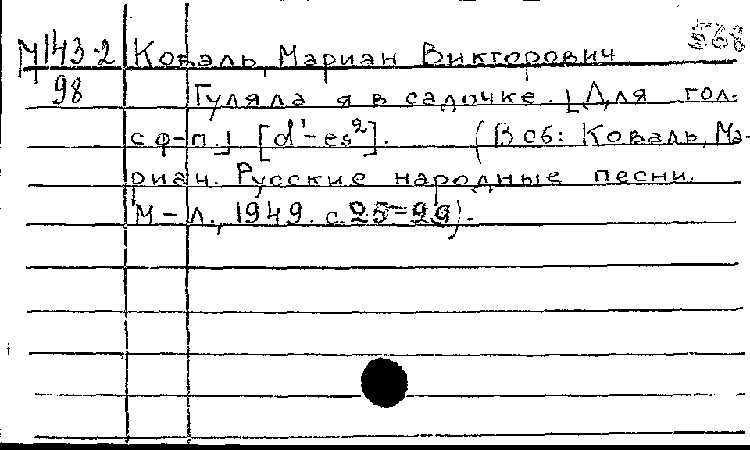 568
М143-2 Коваль, Мариан Викторович
98 Гуляла я в садочке. [Для гол.
с ф-п.] [d¹-es²]. (В сб: Коваль, Ма-
риан. Русские народные песни.
М-Л., 1949. с.